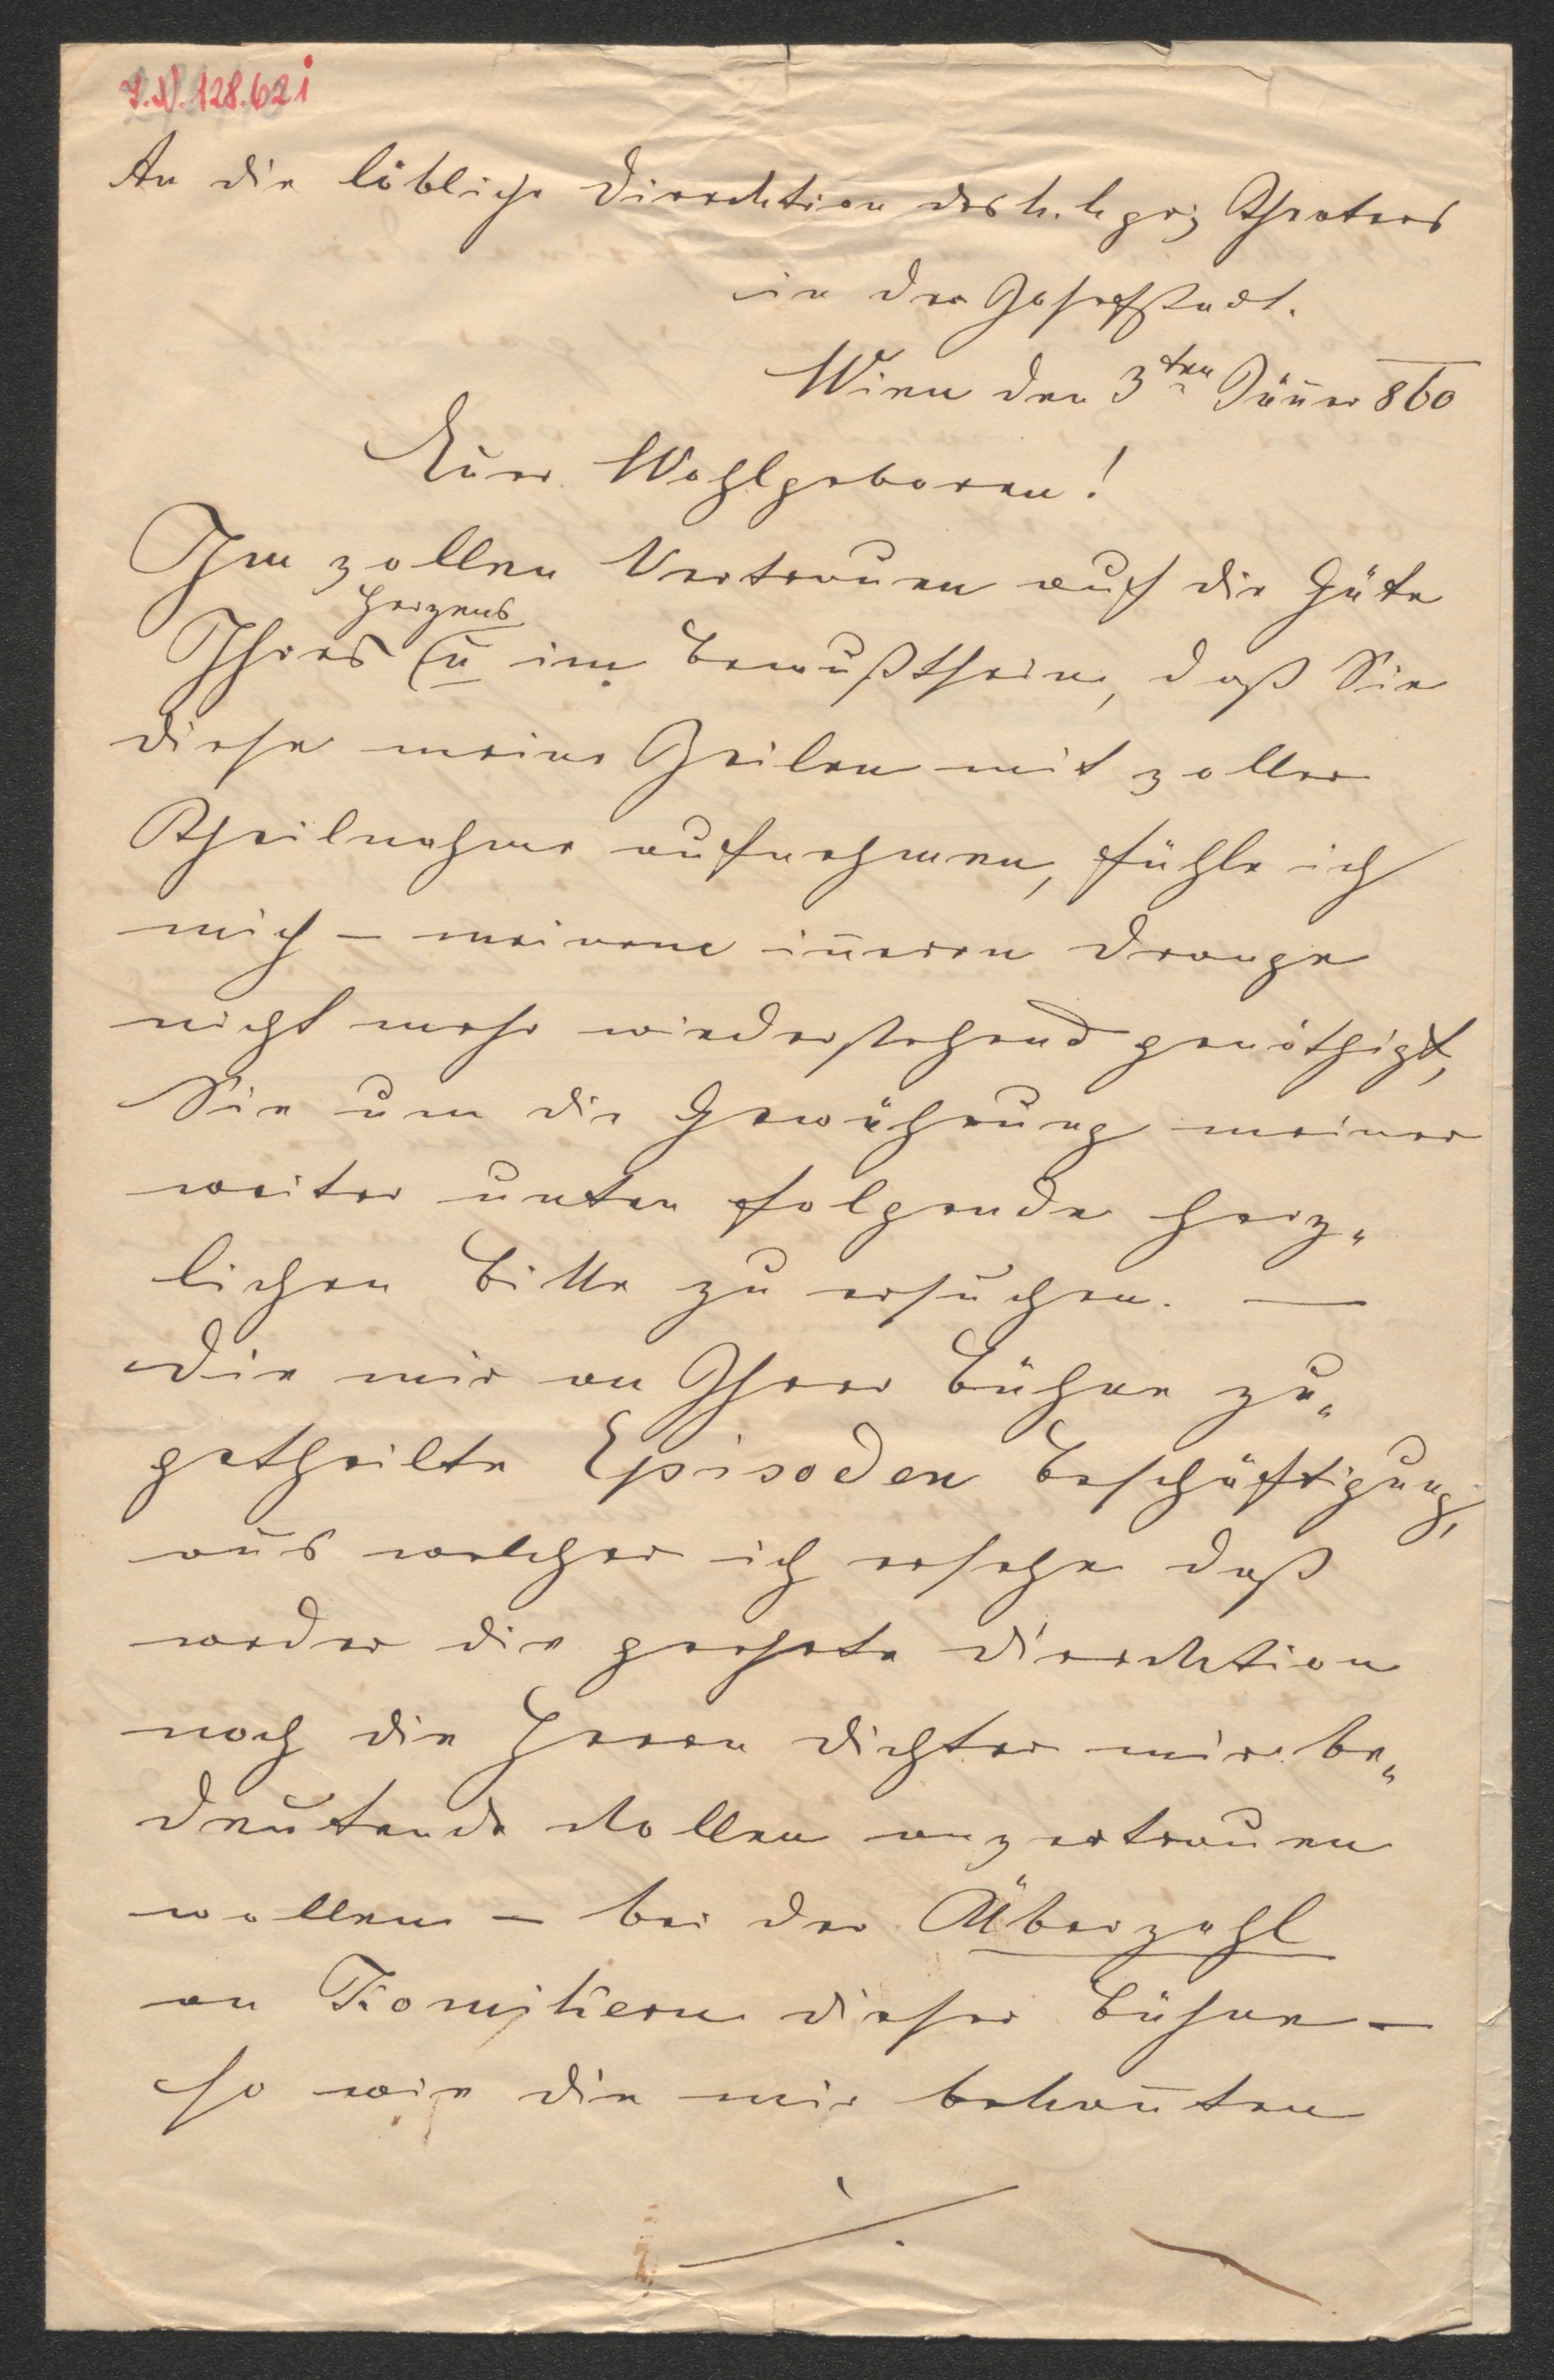 I.N. 128.621
An die löbliche Direcktion des k. k. priv Theaters
in der Josefstadt.
Wien den 3ten Jän̄er 860
Euer Wohlgeboren!
Im vollen Vertrauen auf die Güte
Herzens
Ihres u im Bewußtsein, daß Sie
diese meine Zeilen mit voller
Theilnahme aufnehmen, fühle ich
mich – meinem in̄eren Drange
nicht mehr wiederstehend genöthigt,
Sie um die Gewährung meiner
weiter unten folgende herz„
lichen Bitte zu ersuchen. —
Die mir an Ihrer Bühne zu„
getheilte Episoden Beschäftigung,
aus welcher ich ersehe daß
weder die geehrte Direcktion
noch die Herrn Dichter mir be„
deutende Rollen anvertrauen
wollen – bei der Überzahl
an Komikern dieser Bühne –
so wie die mir bekan̄ten
./.